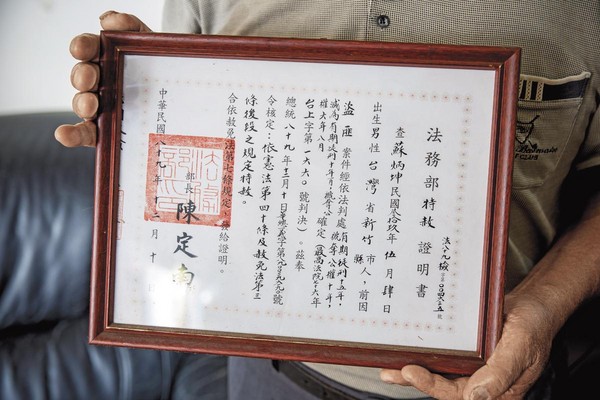 法務部特赦證明書
查蘇炳坤民國叁拾玖年伍月肆日
出生男性台灣省新竹市
縣人,前因
盜匪案件經依法判處有期徒刑十五年,褫奪公權十年,
減為有期徒刑十年,褫奪公權
確定(最高法院七十六年
台上字第一六六〇號判決)。茲奉
總統八十九年十二月十日
號
令核定:依憲法第四十條及赦免法第三
條後段之規定特赦。
合依赦免法第七條規定,發給證明。
部長陳定南
中華民國八十九年十二月十日